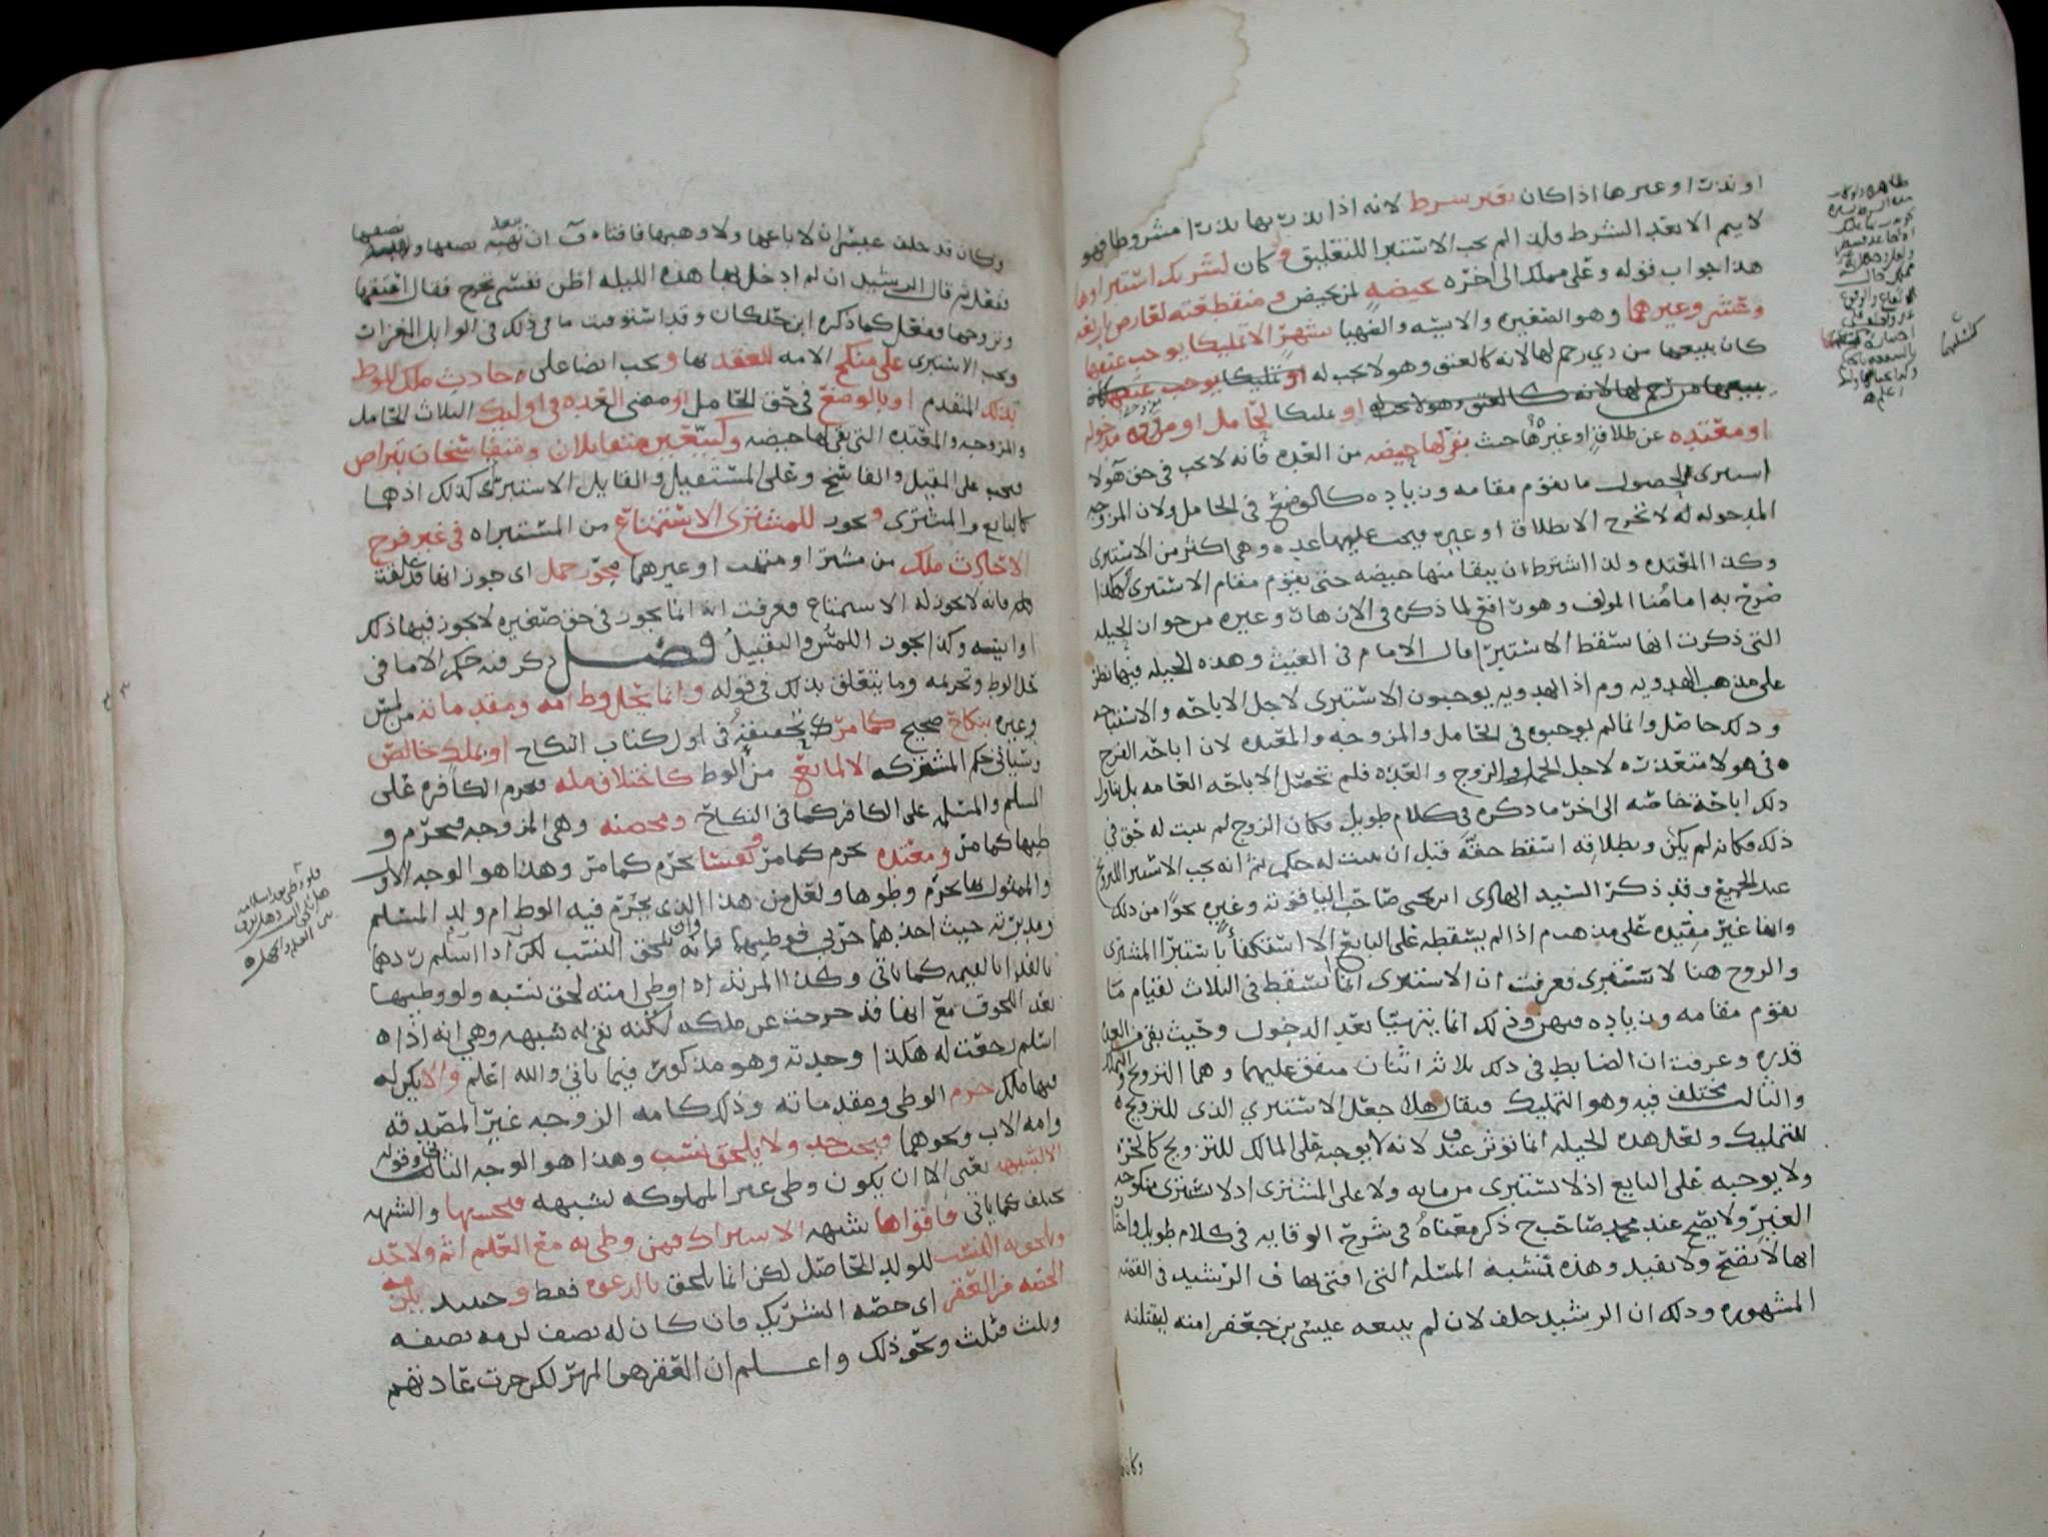 او نذرا او غيرها اذا كان بغير شرط لانه اذا نذر بها نذرا مشروطا فهو
لا يتم الا بعد الشرط فلذا لم يجب الاستبرا للتعليق وكان لشريك استبراوها
هذا جواب قوله وعلى مملك الى اخره بحيضه لمن تحيض و منقطعته لعارض باربعه
وعشر وغيرهما وهو الصغيره والايسه والضهيا بشهر الا تمليكا يوجب عتقها
كان يبيعها من ذي رحم لها لانه كالعتق وهو لا يجب له
او تمليكا لحامل او مزوجه مدخوله
او معتده عن طلاق او غيره حيث بقي لها حيضه من العده فانه لا يجب في حق هولا
استبرى لحصول ما يقوم مقامه وزياده كالوضع في الحامل ولان المزوجه
المدخوله لا تخرج الا بطلاق او غيره فيجب عليها عده وهي اكثر من الاستبرى
وكذا المعتده ولذا اشترط ان يبقا منها حيضه حتى يقوم مقام الاستبرى هكذا
صرح به امامنا المولف وهو رافع لما ذكره في الازهار وغيره من جواز الحيله
التي ذكرت انها تسقط الاستبرا قال الامام في الغيث وهذه الحيله فيها نظر
على مذهب الهدويه اذ الهدويه يوجبون الاستبرى لاجل الاباحه والاستباحه
وذلك حاصل وانما لم يوجبوه في الحامل والمزوجه والمعتده لان اباحه الفرج
في هولا متعذره لاجل الحمل والزوج والعده فلم تحصل الاباحه العامه بل تناول
ذلك اباحه خاصه الى اخر ما ذكره في كلام طويل فكان الزوج لم يثبت له حق في
ذلك فكانه لم يكن وبطلاقه اسقط حقه قبل ان يثبت له حكم ثم انه يجب الاستبرا للتزويج
عند الجميع وقد ذكر السيد الهادي ابن يحيى صاحب الياقوته وغيره نحوا من ذلك
وانها غير مفيده على مذهبهم اذا لم يسقطه على البايع الا استكفا باستبرا المشترى
والزوج هنا لا يستبرى فعرفت ان الاستبرى انما يسقط في الثلاث لقيام ما
يقوم مقامه وزياده فيهن وذلك انما يتهيا بعد الدخول وحيث بقي من العده
قدره وعرفت ان الضابط في ذلك ثلاثه اثنان متفق عليهما وهما التزويج والتملك
والثالث مختلف فيه وهو التمليك فيقال هلا جعل الاستبري الذي للتزويج
للتمليك ولعل هذه الحيله انما توثر عند ف لانه لا يوجبه على المالك للتزويج كالحره
ولا يوجبه على البايع اذ لا يستبرى من مايه ولا على المشترى اذ لا يستبرى منكوحه
الغير ولا يصح عند محمد صاحب ح ذكر معناه في شرح الوقايه في كلام طويل واختار
انها لا تصح ولا تفيد وهذه تشبه المسله التي افتى بها ف الرشيد في القصه
المشهوره وذلك ان الرشيد حلف لان لم يبعه عيسى بن جعفر امته ليقتلنه
وكان
وكان قد حلف عيسى ان لا باعها ولا وهبها فافتاه ف ان يهبه نصفها ويبيعه نصفها
ففعل ثم قال الرشيد ان لم ادخل بها هذه الليله اظن نفسي تخرج فقال اعتقها
وتزوجها ففعل كما ذكره ابن خلكان وقد استوفيت ما في ذلك في الوابل المغزار
ويجب الاستبرى على منكح الامه للعقد بها ويجب ايضا على حادث ملك للوطي
بذلك المتقدم او بالوضع في حق الحامل او مضي العده في اوليك الثلاث الحامل
والمزوجه والمعتده التي بقي لها حيضه وكبيعين متقابلان ومتفاسخان بتراض
فيجب على المقيل والفاسخ وعلى المستقيل والقابل الاستبرى كذلك اذ هما
كالبايع والمشترى ويجوز للمشترى الاستمتاع من المستبراه في غير فرج
الا حادث ملك من مشتر او متهب او غيرهما مجوز حمل اي جوز انها قد علقت
فانه لا يجوز له الاستمتاع فعرفت انه انما يجوز في حق صغيره لا يجوز فيها ذلك
او ايسه وكذا يجوز اللمس والتقبيل فصل ذكر فيه حكم الاما في
حل الوطي وتحريمه وما يتعلق بذلك في قوله وانما يحل وطي امه ومقدماته من لمس
وغيره بنكاح صحيح كما مر تحقيقه في اول كتاب النكاح او بملك خالص
وسياتي حكم المشتركه الا لمانع من الوطي كاختلاف مله فيحرم الكافره على
المسلم والمسلمه على الكافر كما في النكاح ومحصنه وهي المزوجه فيحرم و
طيها كما مر ومعتده يحرم كما مر وكعبتا يحرم كما مر وهذا هو الوجه الاول
والممثول بها يحرم وطوها ولعل من هذا الذي يحرم فيه الوطي ام ولد المسلم
ومدبرته حيث اخذهما حربي فوطيها فانه يلحق النسب لكن اذا اسلم ردهما
بالفدا بالقيمه كما ياتي وكذا المرتد اذا وطي امته لحق نسبه ولو وطيها
بعد اللحوق مع انها قد خرجت عن ملكه لكنه بقي له شبهه وهي انه اذا
اسلم رجعت له هكذا وجدته وهو مذكور فيما ياتي والله اعلم والا يكن له
فيها ملك حرم الوطي ومقدماته وذلك كامه الزوجه غير المصدقه
وامه الاب ونحوهما فيجب حد ولا يلحق نسب وهذا هو الوجه الثالث
الا لشبهه يعني الا ان يكون وطي غير المملوكه لشبهه فبحسبها والشبه
تختلف كما ياتي فاقواها شبهه الاشتراك فمن وطي به مع العلم اثم ولا حد
ولحوق النسب للولد الحاصل لكن انما يلحق بالدعوه فقط وحينئذ يلزمه
الحصه من العقر اي حصه الشريك فان كان له نصف لزمه نصفه
وثلث فثلث ونحو ذلك واعلم ان العقر هو المهر لكن جرت عادتهم